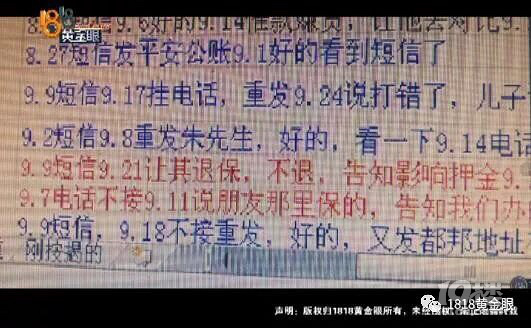 1818
黄金眼
8.29短信9.6好的9.14催款嫌贵，让他去对比9.
8.27短信发平安公账9.1好的看到短信了
9.9短信9.17挂电话，重发9.24说打错了，儿子
9.2短信9.8重发朱先生，好的，看一下9.14电话
9.9短信9.21让其退保，不退，告知影响押金9.
9.7电话不接9.11说朋友那里保的，告知我们办
9.9短信，9.18不接重发，好的，又发都邦地址
刚按揭的
声明：版权归1818黄金眼所有，未经授权，禁止
1818黄金眼